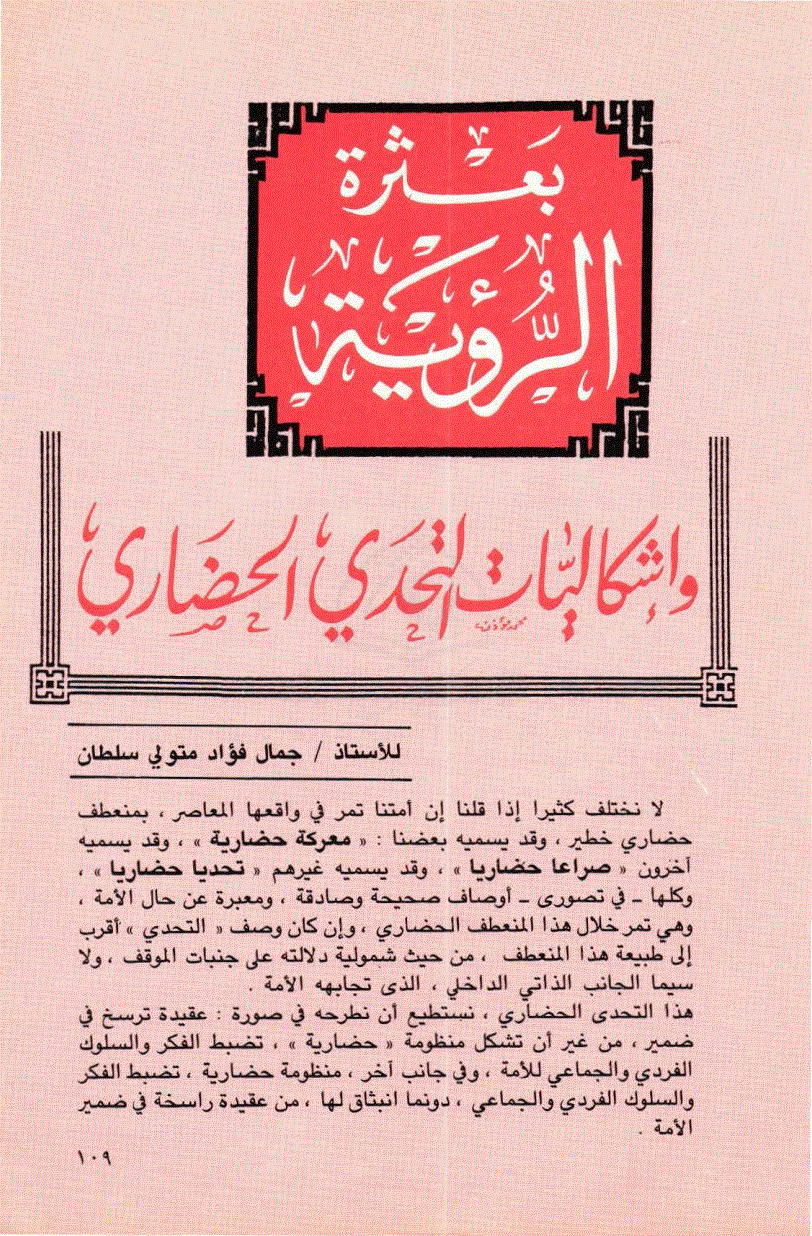 بَعـثرة
الرُّؤيـة
وإشكاليّات التحدي الحضاري
للأستاذ / جمال فؤاد متولي سلطان
لا نختلف كثيرا إذا قلنا إن أمتنا تمر في واقعها المعاصر ، بمنعطف
حضاري خطير ، وقد يسميه بعضنا : « معركة حضارية » ، وقد يسميه
آخرون « صراعا حضاريا » ، وقد يسميه غيرهم « تحديا حضاريا » ،
وكلها ـ في تصورى ـ أوصاف صحيحة وصادقة ، ومعبرة عن حال الأمة ،
وهي تمر خلال هذا المنعطف الحضاري ، وإن كان وصف « التحدي » أقرب
إلى طبيعة هذا المنعطف ، من حيث شمولية دلالته على جنبات الموقف ، ولا
سيما الجانب الذاتي الداخلي ، الذى تجابهه الأمة .
هذا التحدى الحضاري ، نستطيع أن نطرحه في صورة : عقيدة ترسخ في
ضمير ، من غير أن تشكل منظومة « حضارية » ، تضبط الفكر والسلوك
الفردي والجماعي للأمة ، وفي جانب آخر ، منظومة حضارية ، تضبط الفكر
والسلوك الفردي والجماعي ، دونما انبثاق لها ، من عقيدة راسخة في ضمير
الأمة .
١٠٩